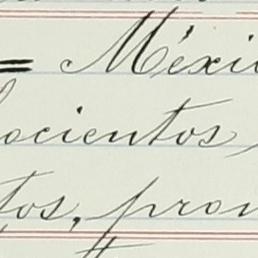 = Méxic
ocientos
tos, pron